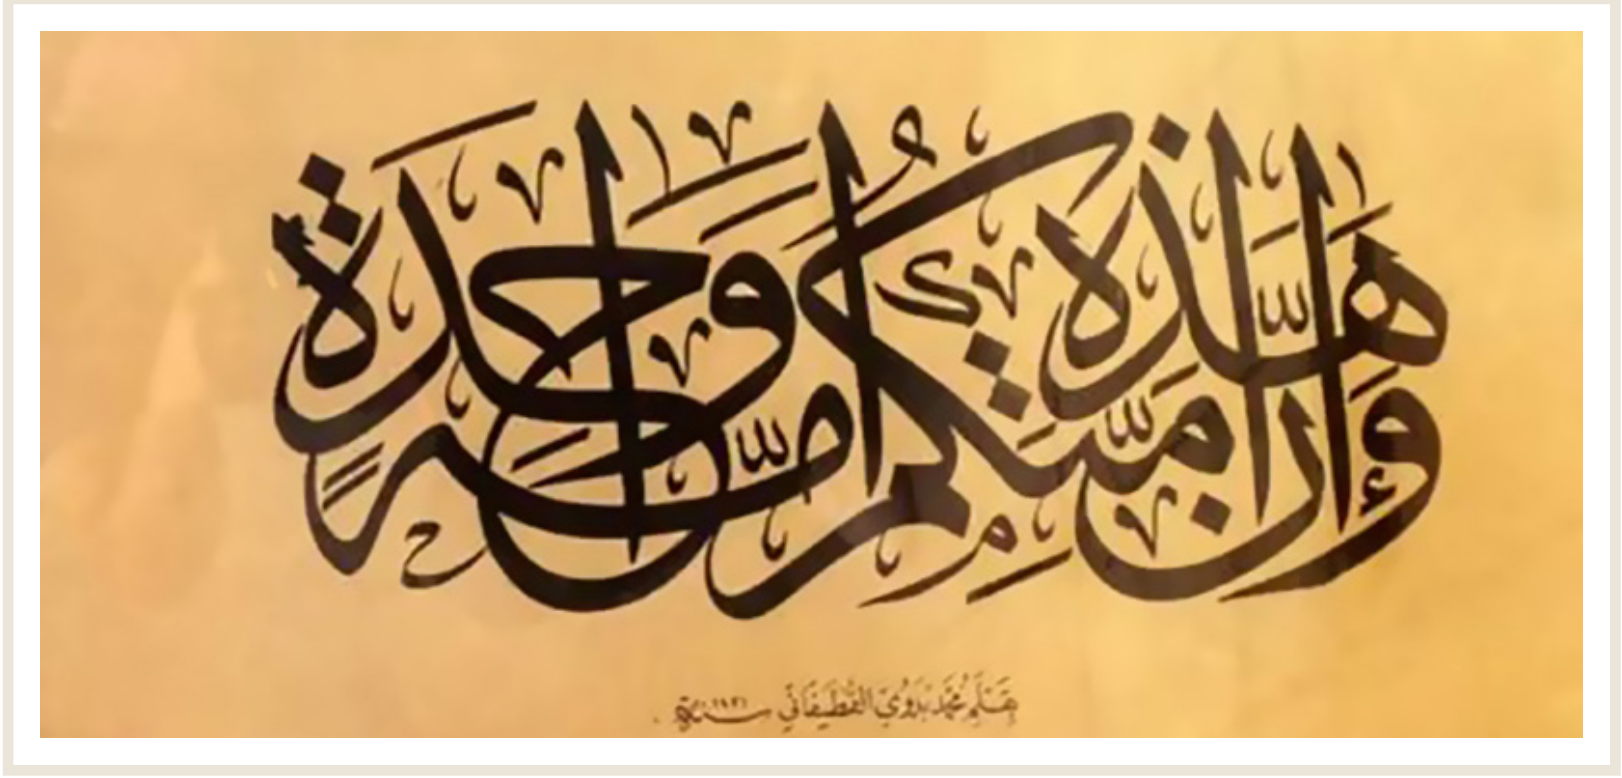 وَإِنَّ هَٰذِهِ أُمَّتُكُمْ أُمَّةً وَاحِدَةً
بِقَلَمِ مُحَمَّد بَدَوِيّ القَطِيفَانِي سنة